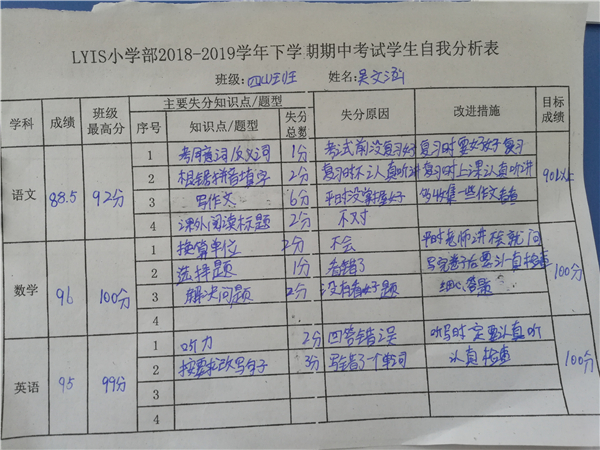 LYIS小学部2018-2019学年下学期期中考试学生自我分析表
班级: 四(1)班 姓名: 吴文涵
学科 成绩 班级最高分 主要失分知识点/题型 失分原因 改进措施 目标成绩
序号 知识点/题型 失分总数
语文 88.5 92分 90以上
1 考同意词反义词 1分 考试前没复习好 复习时要好好复习
2 根据拼音填字 2分 复习时不认真听讲 复习时上课认真听讲
3 写作文 6分 平时没掌握好 收集一些作文
4 课外阅读标题 2分 不对
数学 96 100分 100分
1 换算单位 2分 不会 平时老师讲啥就问
2 选择题 1分 看错了 写完卷子后要认真检查
3 解决问题 2分 没有看好题 细心答题
4
英语 95 99分 100分
1 听力 2分 回答错误 听写时一定要认真听
2 按要求改写句子 3分 写错了一个单词 认真检查
3
4